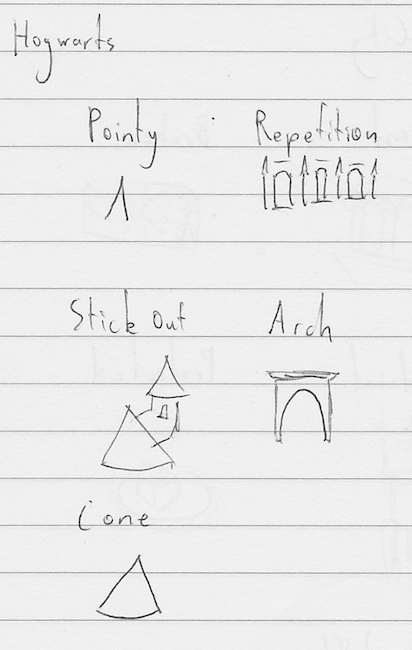 Hogwarts
Pointy Repetition
Stick Out Arch
Cone